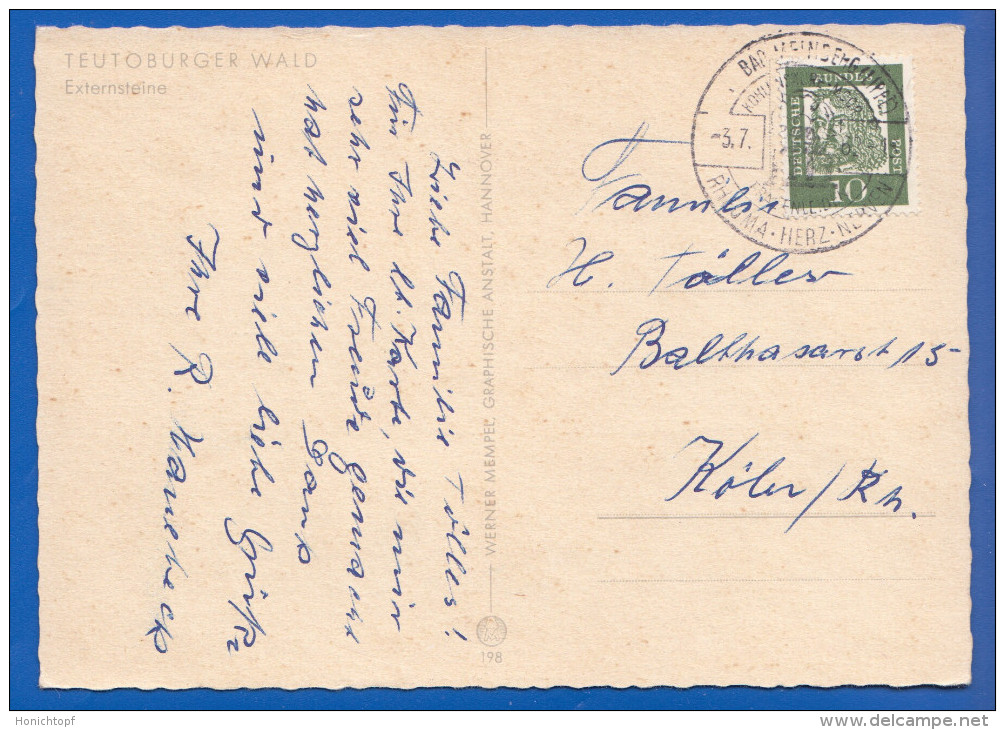 TEUTOBURGER WALD
Externsteine
Liebe Familie Tölles!
Für Ihre lb. Karte, die mir
sehr viel Freude gemacht
hat herzlichen Dank
und viele liebe Grüße
Ihre R.
WERNER MEMPEL, GRAPHISCHE ANSTALT, HANNOVER
198
BAD MEINBERG (LIPPE)
-3.7.
RHEUMA · HERZ · NERVEN
DEUTSCHE BUNDESPOST
10
Familie
H. Tölles
Balthasarst 15-
Köln/Rh.
Honichtopf
www.delcampe.net